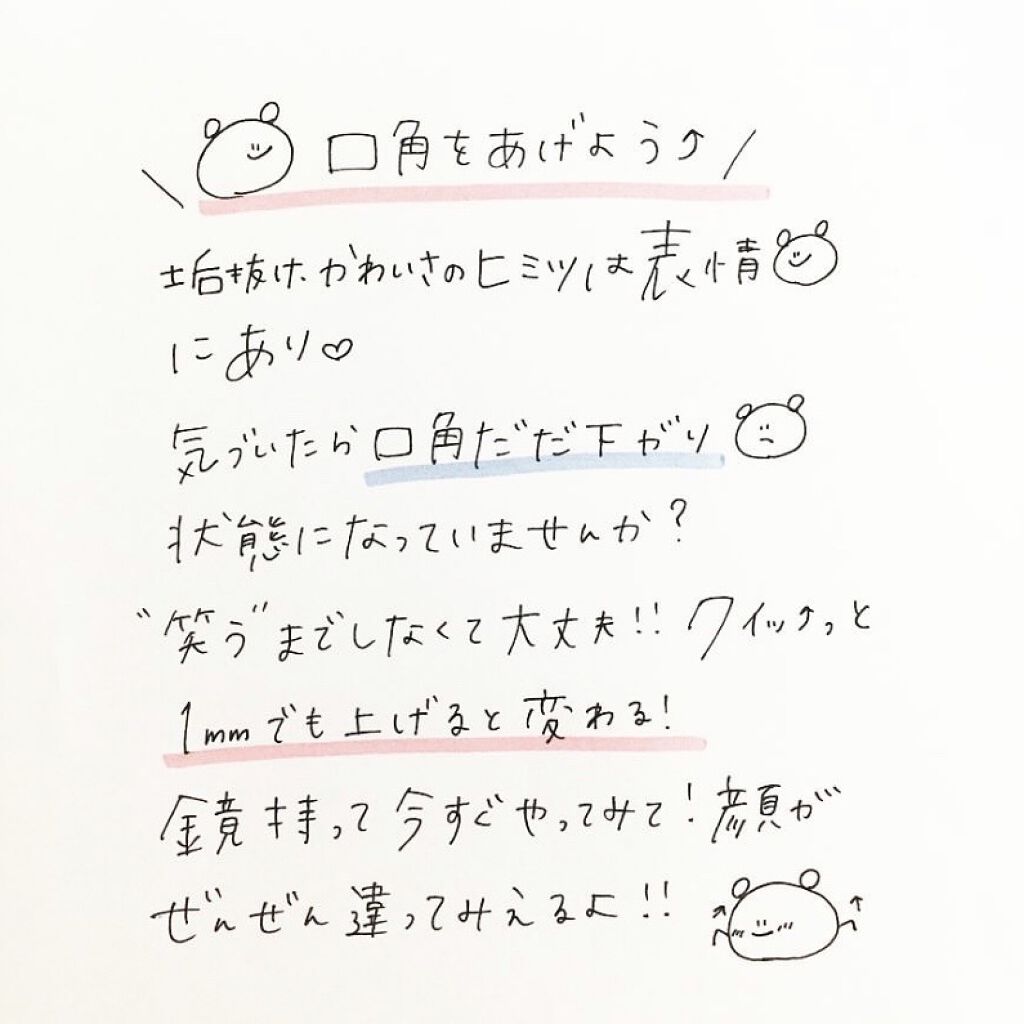 \ 口角をあげよう↑ /
垢抜け、かわいさのヒミツは表情
にあり♡
気づいたら口角だだ下がり
状態になっていませんか？
"笑う"までしなくて大丈夫!! クイッ↑っと
1mmでも上げると変わる!
鏡持って今すぐやってみて! 顔が
ぜんぜん違ってみえるよ!!